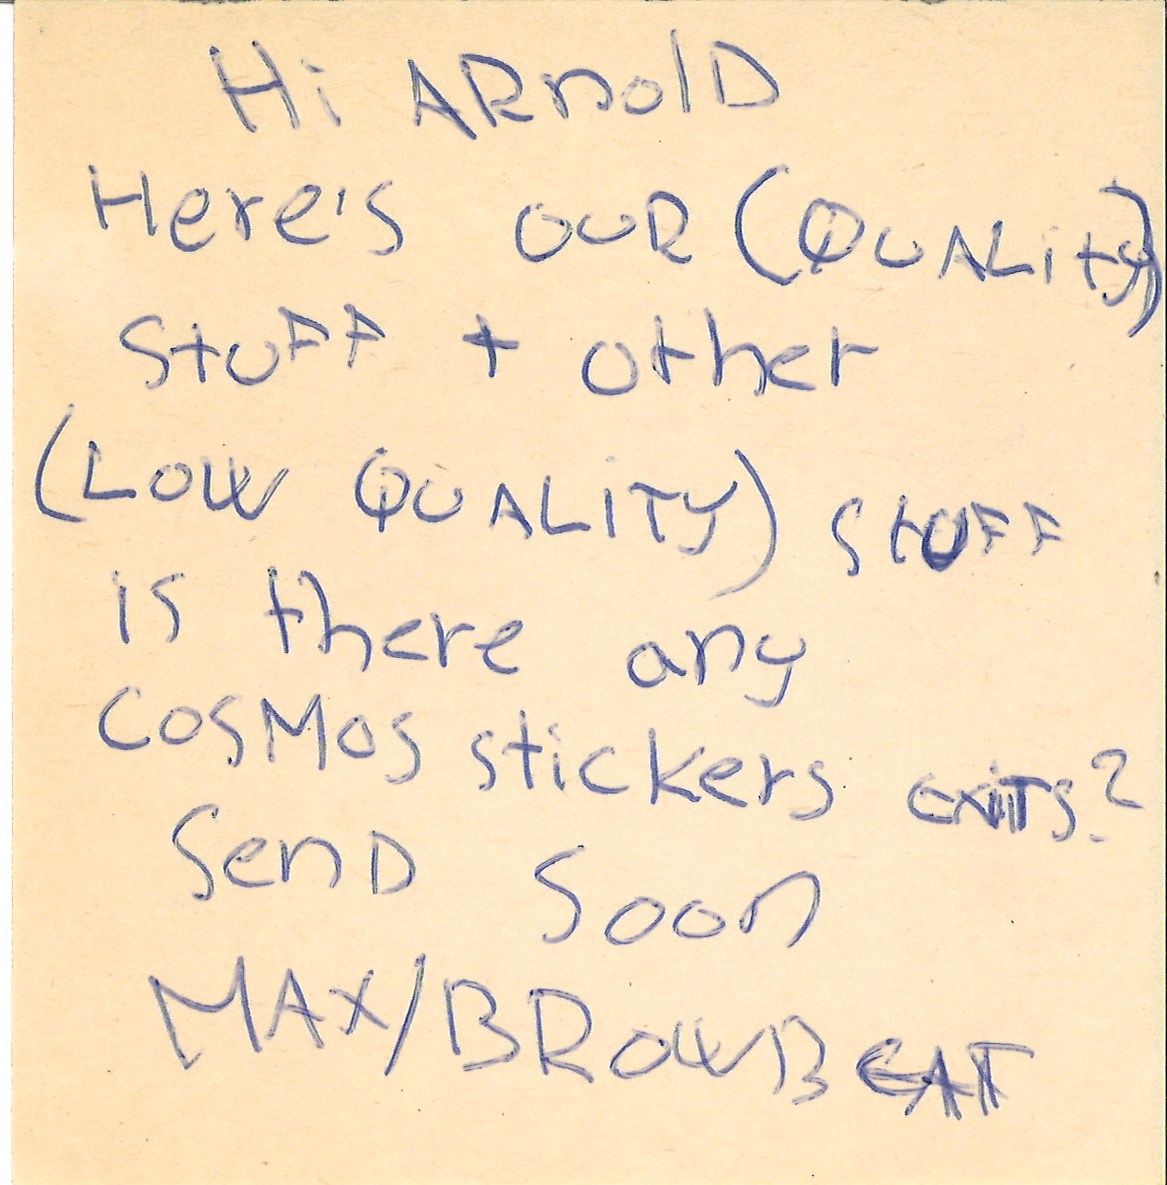 Hi ARnolD
Here's OUR (QUALity)
StuFF + other
(LOW QUALITY) StUFF
is there any
COSMOS stickers exits?
SenD Soon
MAX/BROWBEAT